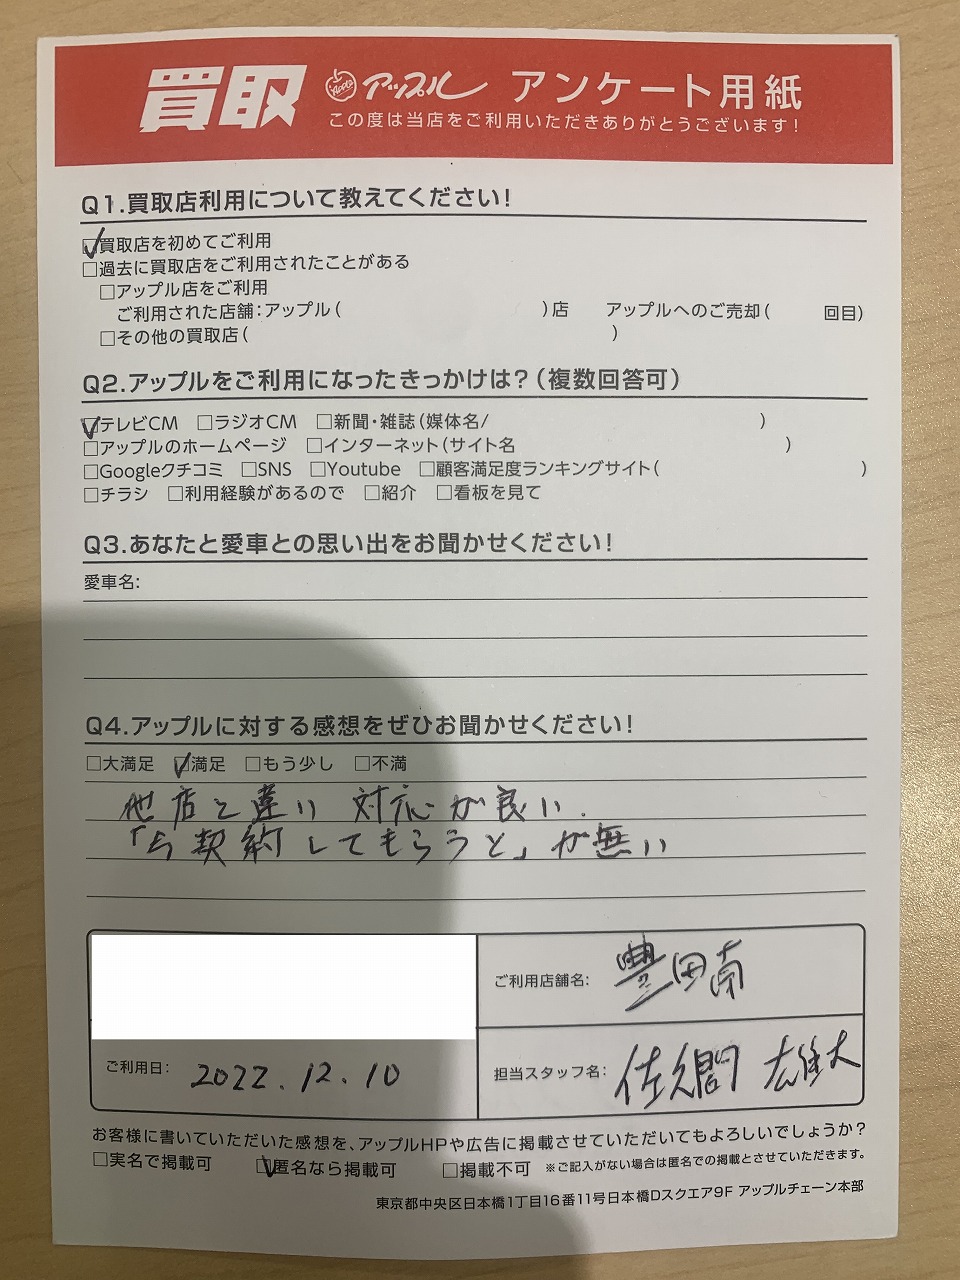 買取 アップル アンケート用紙
この度は当店をご利用いただきありがとうございます!
Q1.買取店利用について教えてください!
☑買取店を初めてご利用
□過去に買取店をご利用されたことがある
□アップル店をご利用
ご利用された店舗:アップル( )店 アップルへのご売却( 回目)
□その他の買取店( )
Q2.アップルをご利用になったきっかけは?(複数回答可)
☑テレビCM □ラジオCM □新聞・雑誌(媒体名/ )
□アップルのホームページ □インターネット(サイト名 )
□Googleクチコミ □SNS □Youtube □顧客満足度ランキングサイト( )
□チラシ □利用経験があるので □紹介 □看板を見て
Q3.あなたと愛車との思い出をお聞かせください!
愛車名:
Q4.アップルに対する感想をぜひお聞かせください!
□大満足 ☑満足 □もう少し □不満
他店と違い 対応が良い.
「今契約してもらうと」が無い
ご利用店舗名: 豊田南
ご利用日: 2022.12.10
担当スタッフ名: 佐久間 雄大
お客様に書いていただいた感想を、アップルHPや広告に掲載させていただいてもよろしいでしょうか?
□実名で掲載可 ☑匿名なら掲載可 □掲載不可 ※ご記入がない場合は匿名での掲載とさせていただきます。
東京都中央区日本橋1丁目16番11号日本橋Dスクエア9F アップルチェーン本部